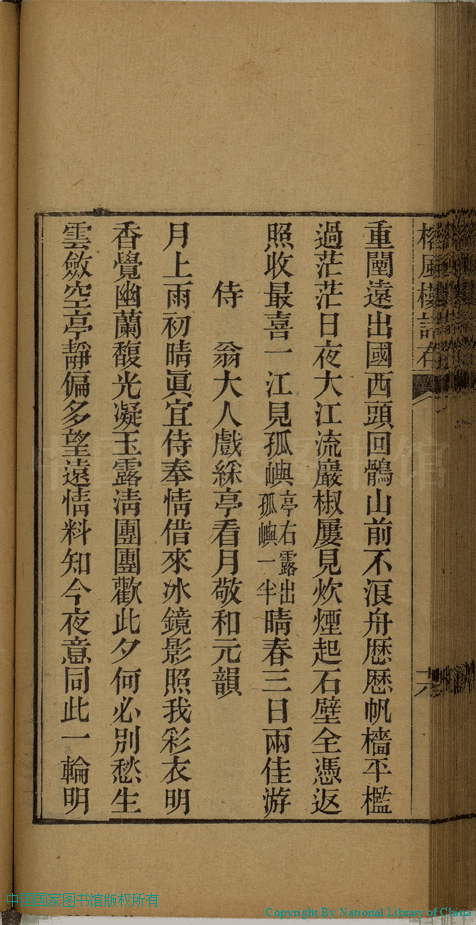 重闉遠出國西頭回鶻山前不浪舟歷歷帆檣平檻
過茫茫日夜大江流巖椒屢見炊煙起石壁全憑返
照收最喜一江見孤嶼亭右露出孤嶼一半晴春三日兩佳游
侍 翁大人戲綵亭看月敬和元韻
月上雨初晴眞宜侍奉情借來冰鏡影照我彩衣明
香覺幽蘭馥光凝玉露淸團團歡此夕何必別愁生
雲斂空亭靜偏多望遠情料知今夜意同此一輪明
中国国家图书馆版权所有
Copyright By National Library of China